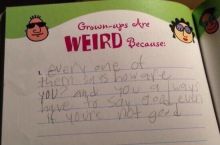 Grown-ups Are
WEIRD Because:
every one of
them says how are
you and you always
have to say good even
if yours not good